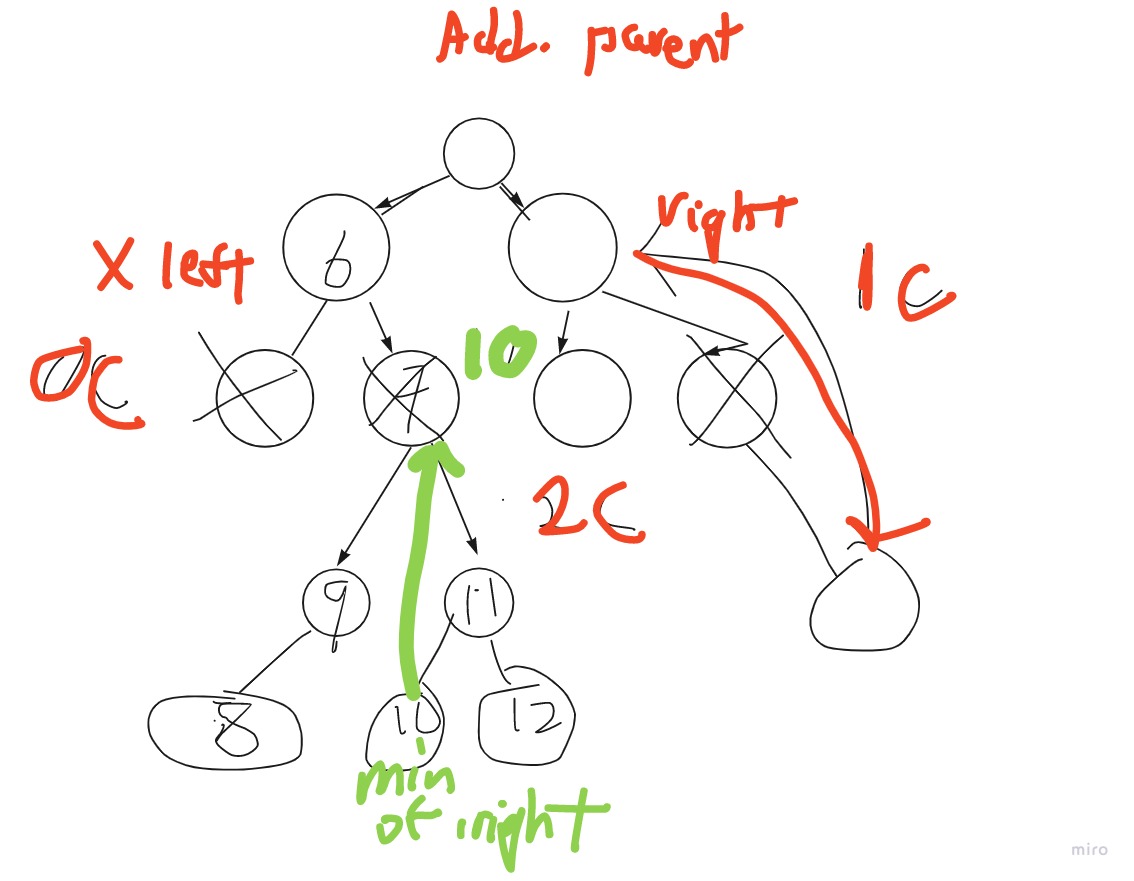 Add. parent
right
X left
6
1C
0C
7
10
2C
9
11
8
10
12
min
of right
miro